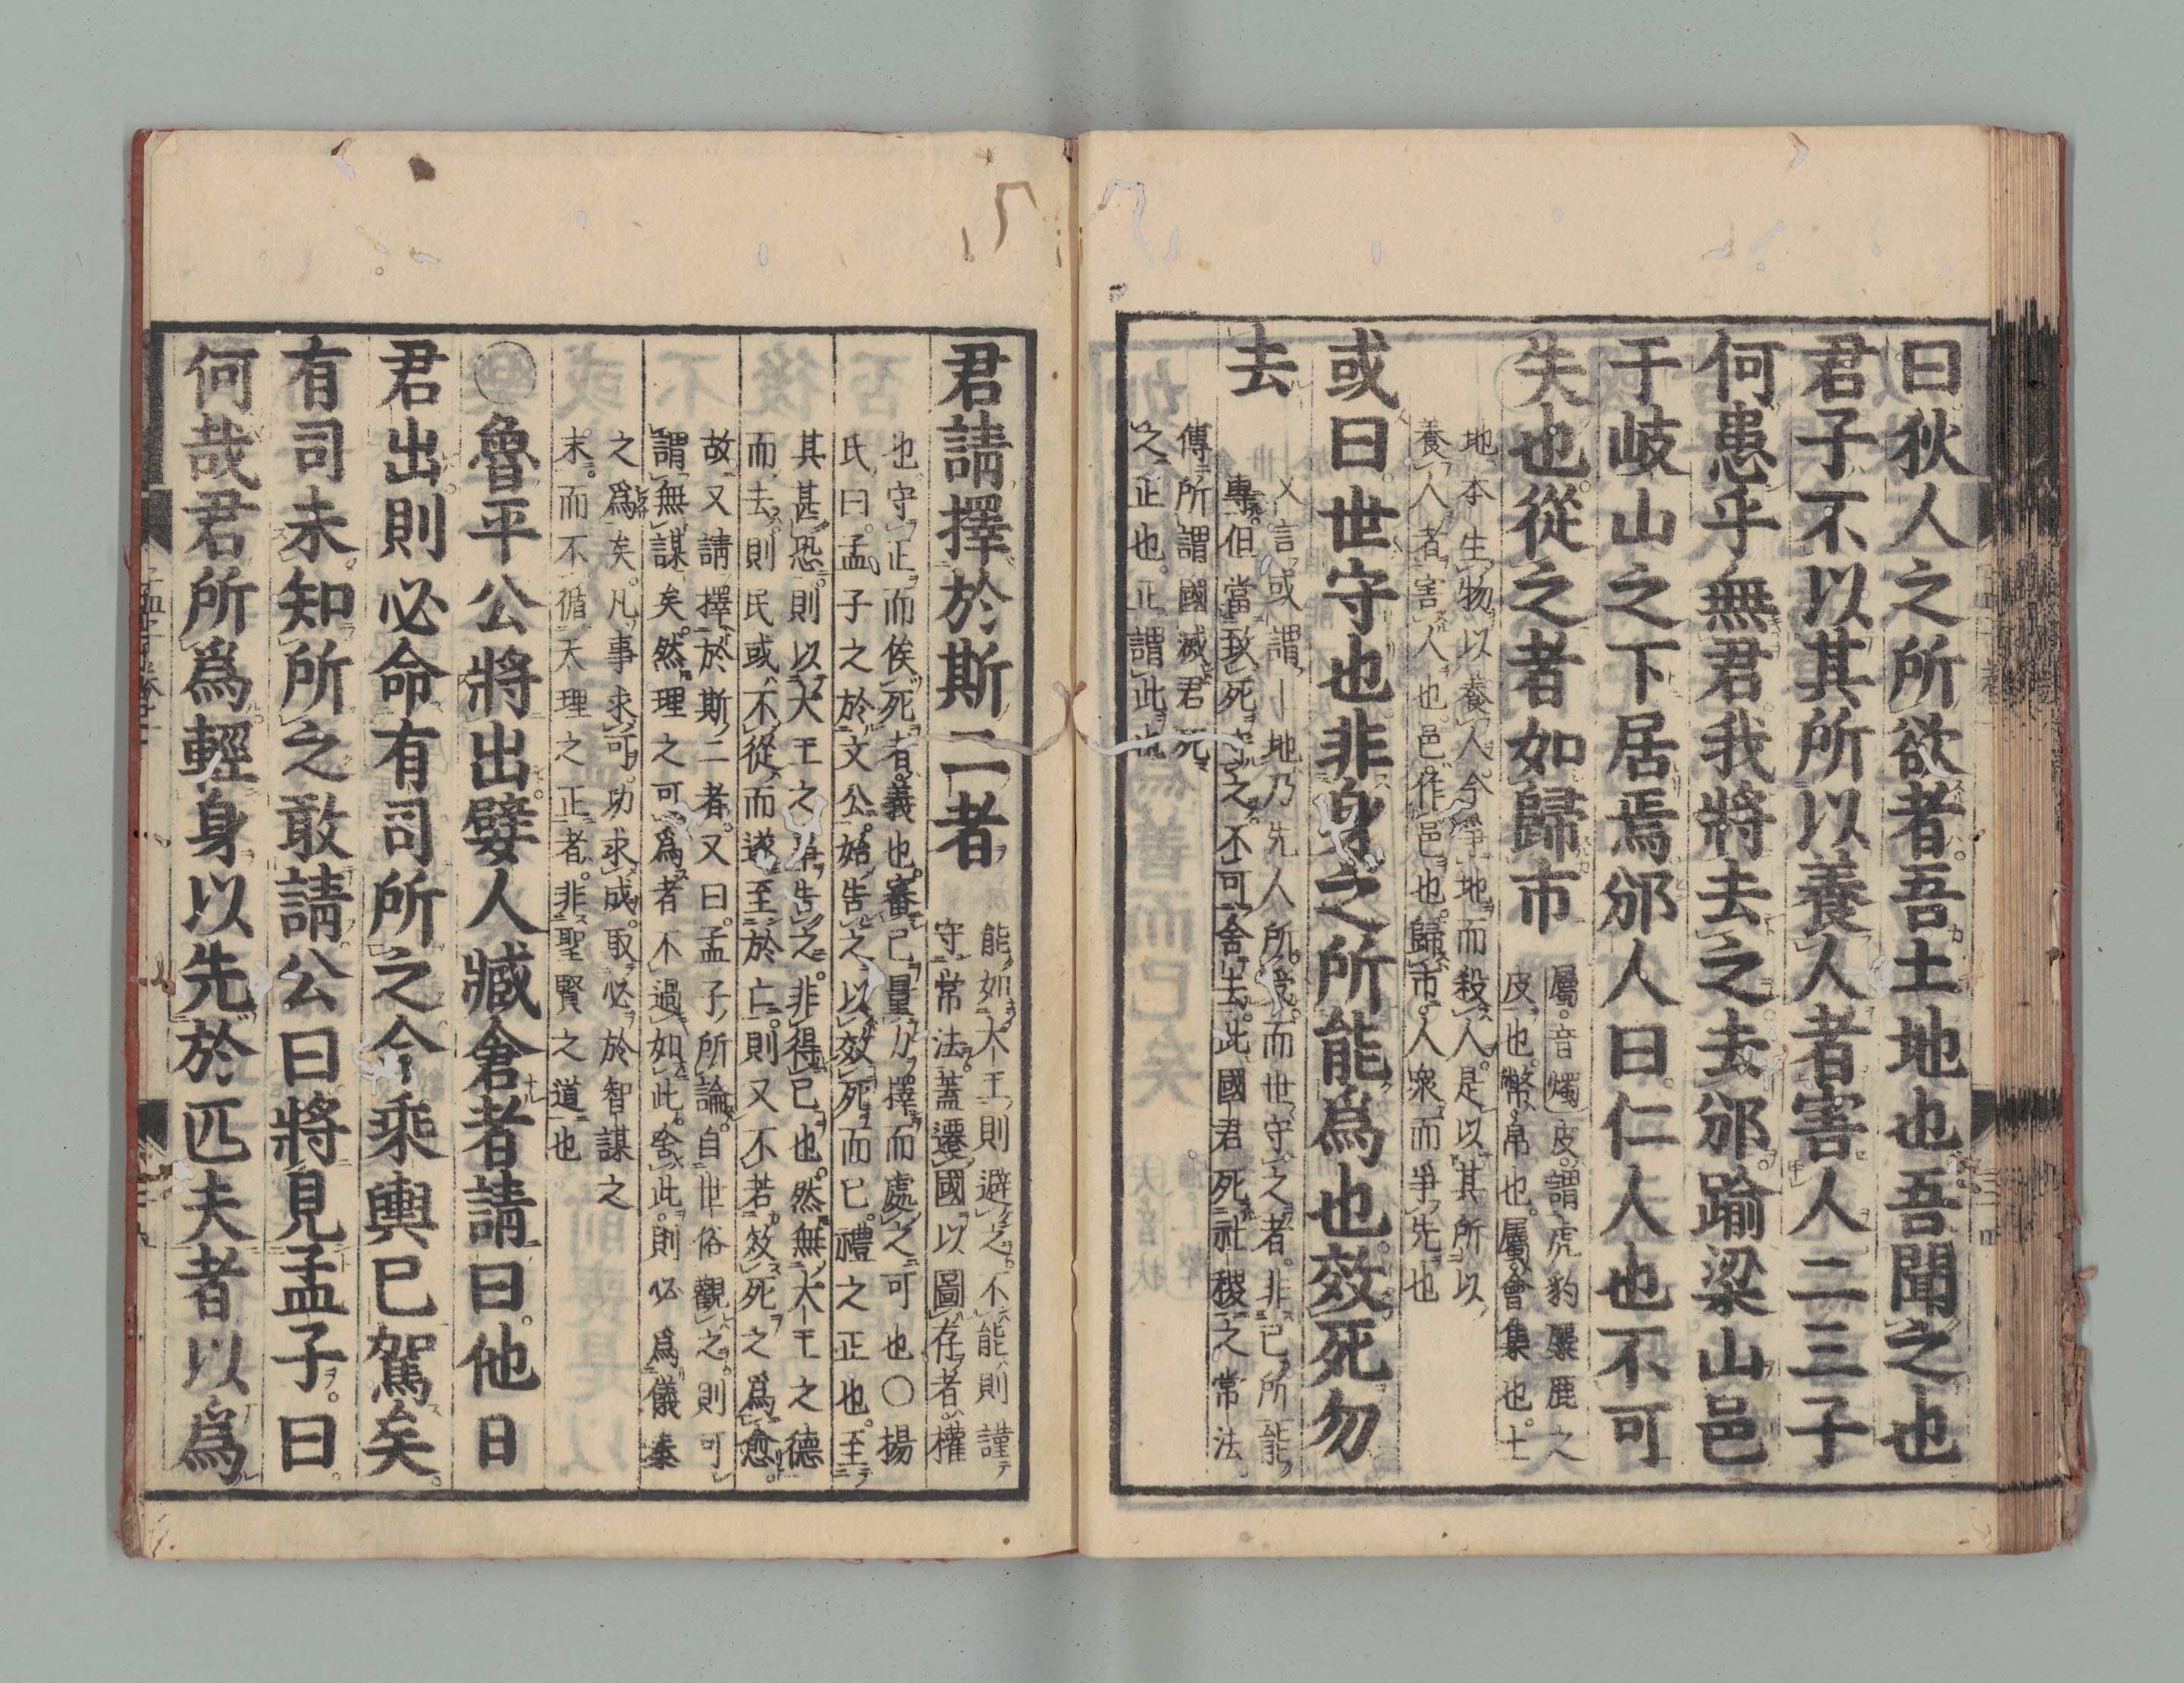 曰狄人之所欲者吾土地也吾聞之也
君子不以其所以養人者害人二三子
何患乎無君我將去之去邠踰梁山邑
于岐山之下居焉邠人曰仁人也不可
失也從之者如歸市
屬音燭皮謂虎豹麋鹿之
皮也幣帛也屬會集也土
地本生物以養人今爭地而殺人是以其所以
養人者害人也邑作邑也歸市人衆而爭先也
或曰世守也非身之所能爲也效死勿
去
又言或謂土地乃先人所受而世守之者非己所能
專但當致死守之不可舍去此國君死社稷之常法
傳所謂國滅君死
之正也正謂此也
君請擇於斯二者
能如大王則避之不能則謹
守常法蓋遷國以圖存者權
也守正而俟死者義也審己量力擇而處之可也○楊
氏曰孟子之於文公始告之以效死而已禮之正也至
其甚恐則以大王之事告之非得已也然無大王之德
而去則民或不從而遂至於亡則又不若效死之爲愈
故又請擇於斯二者又曰孟子所論自世俗觀之則可
謂無謀矣然理之可爲者不過如此舍此則必爲儀秦
之爲矣凡事求可功求成取必於智謀之
末而不循天理之正者非聖賢之道也
魯平公將出嬖人臧倉者請曰他日
君出則必命有司所之今乘輿已駕矣
有司未知所之敢請公曰將見孟子曰
何哉君所爲輕身以先於匹夫者以爲